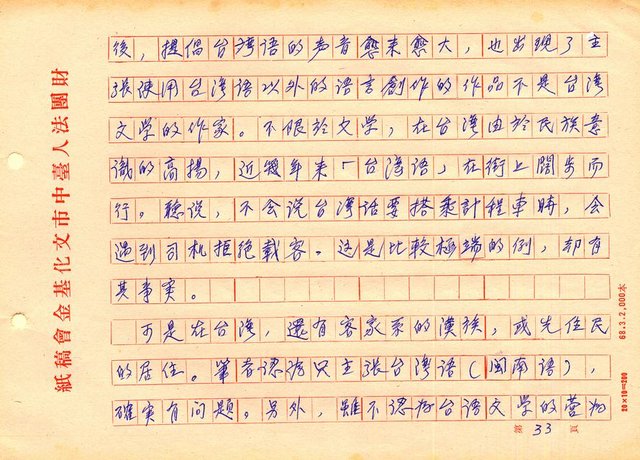 後，提倡台湾语的声音愈来愈大，也出现了主
张使用台湾语以外的语言創作的作品不是台湾
文学的作家。不限於文学，在台湾由於民族意
識的高揚，近幾年来「台湾语」在街上闊步而
行。聽说，不会说台湾话要搭乘計程車時，会
遇到司机拒绝載客。这是比較極端的例，却有
其事实。
可是在台湾，還有客家系的漢族，或先住民
的居住。筆者認為只主张台湾语（閩南语），
確実有问题。另外，雖不認為台语文学的营为
第 33 頁
財團法人臺中市文化基金會稿紙
68.3.2,000本
20×10=200